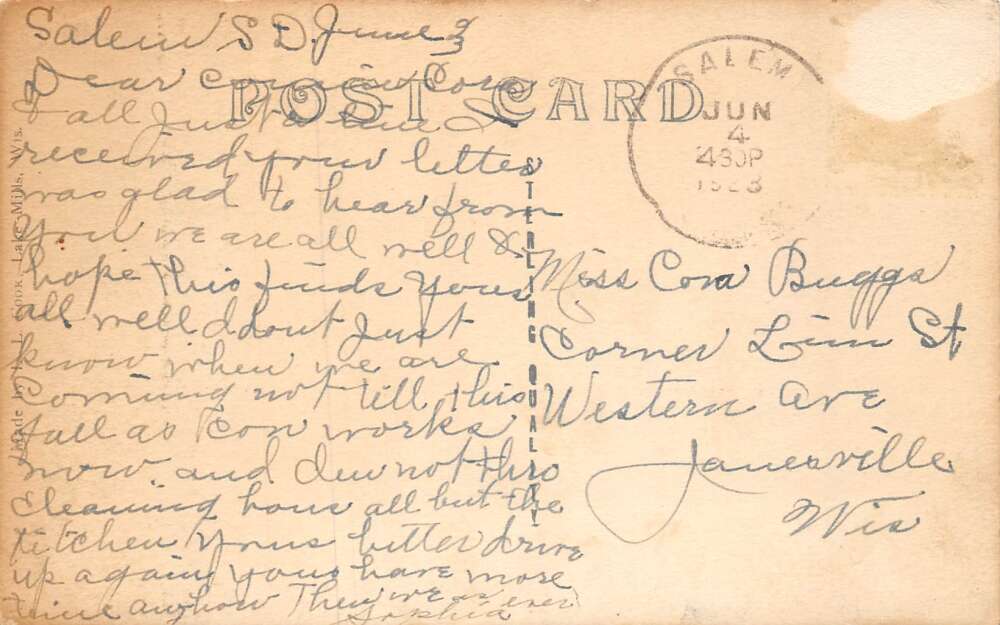 Salem S D. June 3
Dear cousin Cora
& all Just a line I
received your letter
was glad to hear from
you we are all well &
hope this finds yous
all well d dont Just
know when we are
coming not till this
fall as works
now. and Im not thro
cleaning hous all but the
kitchen yous better drive
up again yous have more
time anyhow Then we as ever
Sophia
POST CARD
STERLING QUALITY
Made by Cook, Lake Mills, Wis.
SALEM
JUN
4
430P
Miss Cora Buggs
Corner Linn St
Western Ave
Janesville
Wis